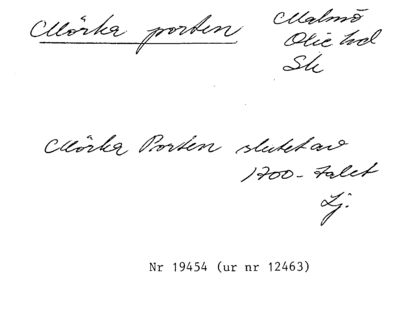 Mörka porten
Malmö
Oxie hd
Sk
Mörka Porten slutet av
1700-talet
Lj.
Nr 19454 (ur nr 12463)